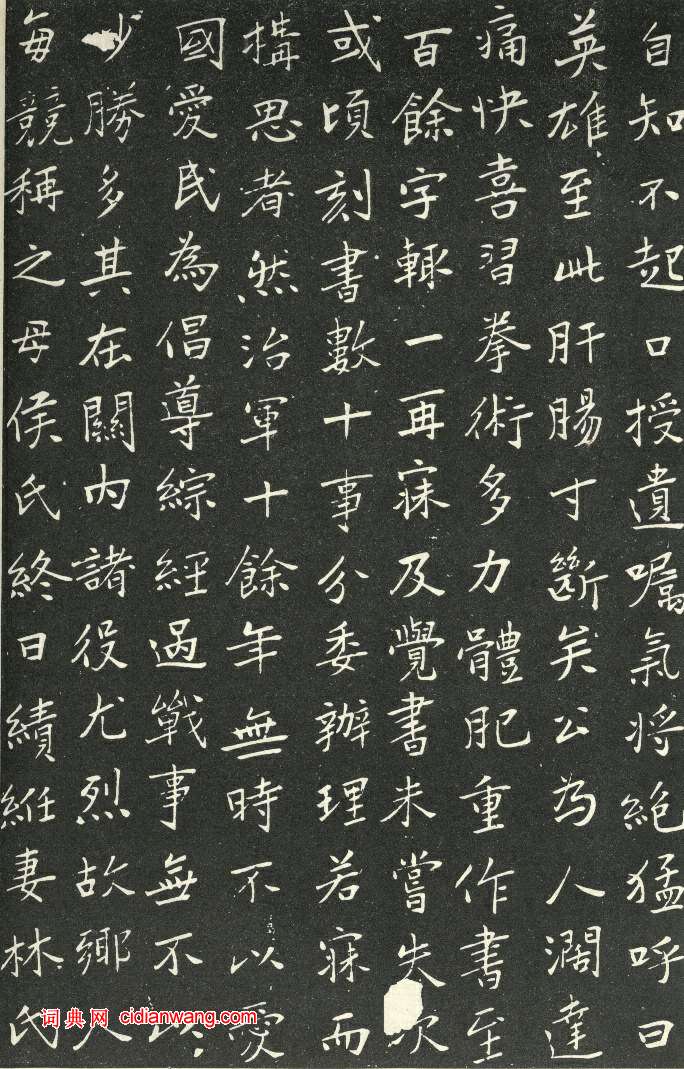 自知不起口授遺囑氣將絕猛呼曰
英雄至此肝腸寸斷矣公為人濶達
痛快喜習拳術多力體肥重作書至
百餘字輒一再寐及覺書未嘗失次
或頃刻書數十事分委辦理若寐而
構思者然治軍十餘年無時不以愛
國愛民為倡導綜經過戰事無不以
少勝多其在關內諸役尤烈故鄉人
每競稱之母侯氏終日績絍妻林氏
词典网 cidianwang.com